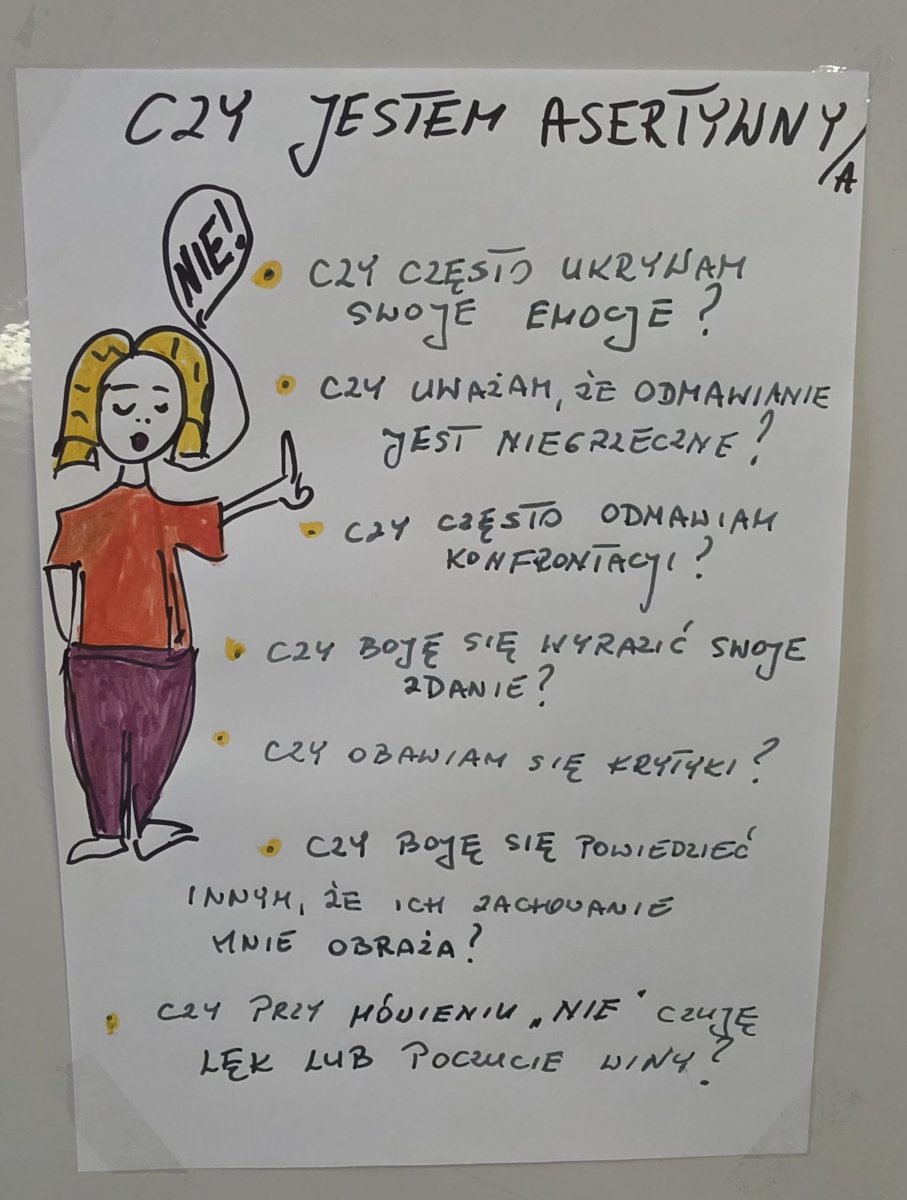 CZY JESTEM ASERTYWNY/A
NIE!
CZY CZĘSTO UKRYWAM
SWOJE EMOCJE?
CZY UWAŻAM, ŻE ODMAWIANIE
JEST NIEGRZECZNE?
CZY CZĘSTO ODMAWIAM
KONFRONTACJI?
CZY BOJĘ SIĘ WYRAZIĆ SWOJE
ZDANIE?
CZY OBAWIAM SIĘ KRYTYKI?
CZY BOJĘ SIĘ POWIEDZIEĆ
INNYM, ŻE ICH ZACHOWANIE
MNIE OBRAŻA?
CZY PRZY MÓWIENIU „NIE" CZUJĘ
LĘK LUB POCZUCIE WINY?